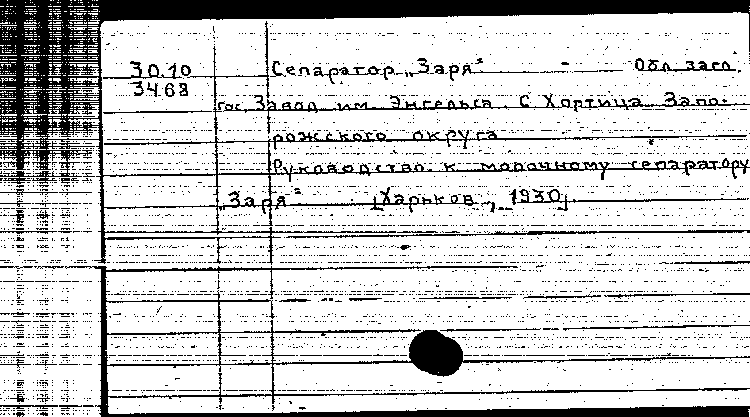 30.10 Сепаратор „Заря“ - Обл. загл.
3468
гос. Завод им Энгельса. С Хортица Запо-
рожского округа
Руководство к молочному сепаратору
„Заря“ [Харьков, 1930].